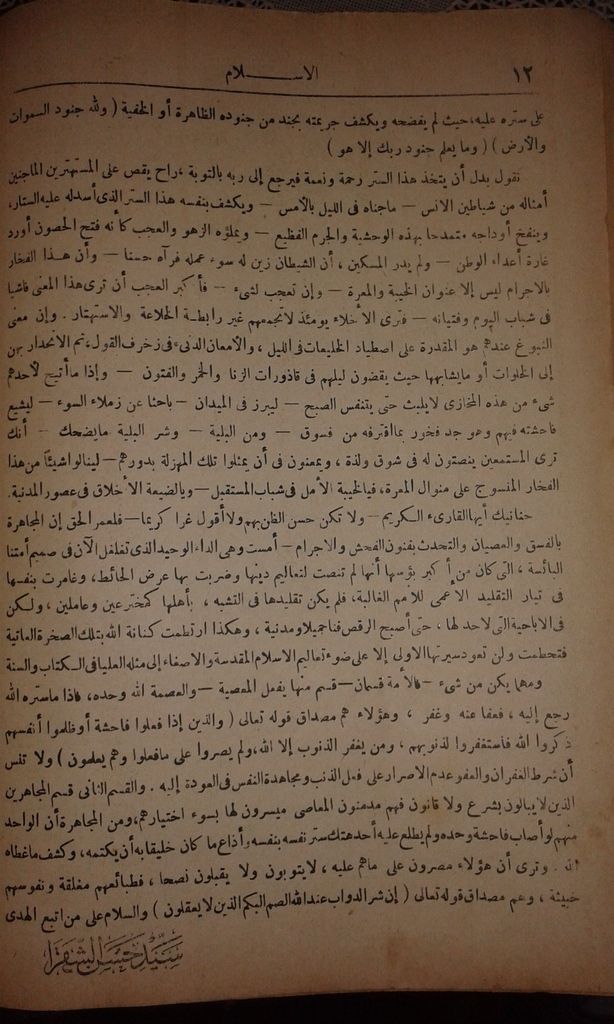 ١٢
الاســـلام
على ستره عليه، حيث لم يفضحه ويكشف جريمته بجند من جنوده الظاهرة أو الخفية ( ولله جنود السموات
والأرض ) ( وما يعلم جنود ربك إلا هو )
نقول بدل أن يتخذ هذا الستر رحمة ونعمة فيرجع إلى ربه بالتوبة ، راح يقص على المستهترين الماجنين
أمثاله من شياطين الانس — ماجناه فى الليل بالأمس — ويكشف بنفسه هذا الستر الذى أسدله عليه الستار،
وينفخ أوداجه متمدحا بهذه الوحشية والجرم الفظيع — ويملؤه الزهو والعجب كأنه فتح الحصون أورد
غارة أعداء الوطن — ولم يدر المسكين ، أن الشيطان زين له سوء عمله فرآه حسنا — وأن هذا الفخار
بالاجرام ليس إلا عنوان الخيبة والمعرة — وإن تعجب لشىء — فأكبر العجب أن ترى هذا المعنى فاشيا
فى شباب اليوم وفتيانه — فترى الأخلاء يومئذ لاتجمعهم غير رابطة الخلاعة والاستهتار . وإن معنى
النبوغ عندهم هو المقدرة على اصطياد الخليعات فى الليل ، والامعان الدنىء فى زخرف القول، ثم الانحدار بهن
إلى الخلوات أو مايشابهها حيث يقضون ليلهم فى قاذورات الزنا والخمر والفتون — وإذا ما أتيح لأحدهم
شىء من هذه المخازى لايلبث حتى يتنفس الصبح — ليبرز فى الميدان — باحثا عن زملاء السوء — ليشيع
فاحشته فيهم وهو جد فخور بما اقترفه من فسوق — ومن البلية — وشر البلية مايضحك — أنك
ترى المستمعين ينصتون له فى شوق ولذة ، ويمعنون فى أن يمثلوا تلك المهزلة بدورهم — لينالوا شيئاً من هذا
الفخار المنسوج على منوال المعرة، فيالخيبة الأمل فى شباب المستقبل — ويالضيعة الأخلاق فى عصور المدنية.
حنانيك أيها القارىء الكريم — ولا تكن حسن الظن بهم ولا أقول غرا كريما — فلعمر الحق إن المجاهرة
بالفسق والعصيان والتحدث بفنون الفحش والاجرام — أمست وهى الداء الوحيد الذى تغلغل الآن فى صميم أمتنا
البائسة ، التى كان من أكبر بؤسها أنها لم تنصت لتعاليم دينها وضربت بها عرض الحائط، وغامرت بنفسها
فى تيار التقليد الأعمى للأمم الغالبة، فلم يكن تقليدها فى التشبه ، بأهلها كمخترعين وعاملين ، ولكن
فى الاباحية التى لاحد لها ، حتى أصبح الرقص فنا جميلا ومدنية ، وهكذا ارتطمت كنانة الله بتلك الصخرة العاتية
فتحطمت ولن تعود سيرتها الأولى إلا على ضوء تعاليم الاسلام المقدسة والاصغاء إلى مثله العليا فى الكتاب والسنة
ومهما يكن من شىء — فالأمة قسمان — قسم منها يفعل المعصية — والعصمة لله وحده، فاذا ماستره الله
رجع إليه ، فعفا عنه وغفر ، وهؤلاء هم مصداق قوله تعالى ( والذين إذا فعلوا فاحشة أو ظلموا أنفسهم
ذكروا الله فاستغفروا لذنوبهم ، ومن يغفر الذنوب إلا الله، ولم يصروا على مافعلوا وهم يعلمون ) ولا تنس
أن شرط الغفران والعفو عدم الاصرار على فعل الذنب ومجاهدة النفس فى العودة إليه . والقسم الثانى قسم المجاهرين
الذين لايبالون بشرع ولا قانون فهم مدمنون المعاصى ميسرون لها بسوء اختيارهم، ومن المجاهرة أن الواحد
منهم لو أصاب فاحشة وحده ولم يطلع عليه أحد هتك ستر نفسه بنفسه وأذاع ما كان خليقا به أن يكتمه، وكشف ماغطاه
الله . وترى أن هؤلاء مصرون على ماهم عليه ، لايتوبون ولا يقبلون نصحا ، فطبائعهم مغلقة ونفوسهم
خبيثة ، وهم مصداق قوله تعالى ( إن شر الدواب عند الله الصم البكم الذين لايعقلون ) والسلام على من اتبع الهدى
سيد حسن الشقرا